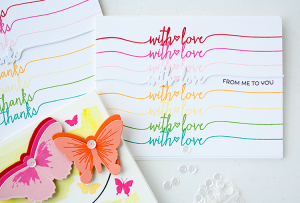 with love
with love
with love
with love
FROM ME TO YOU
with love
with love
with love
with love
hanks
hanks
hanks
thanks